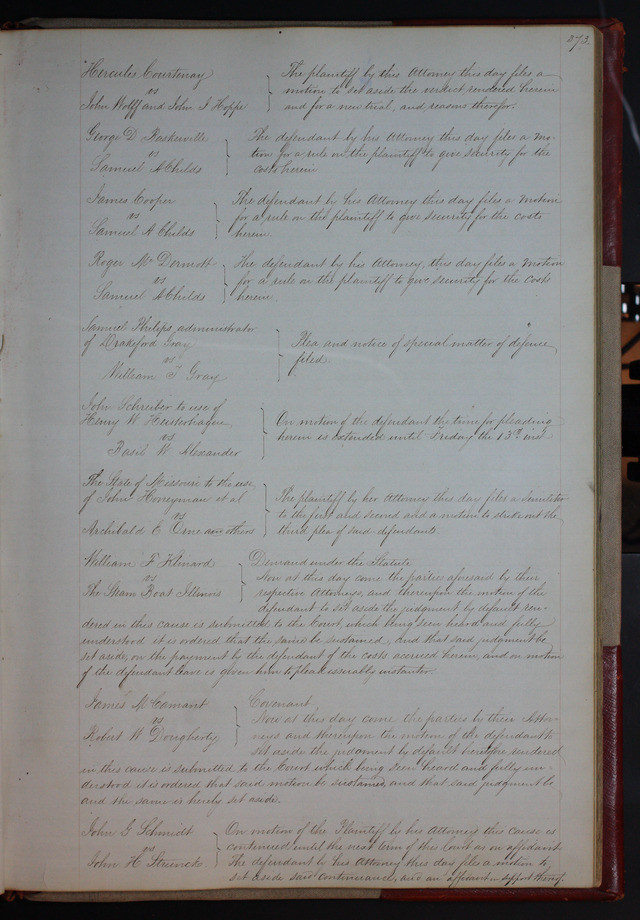 373.
Hercules Courtenay
vs
John Wolff and John J Hoppe
The plaintiff by his Attorney this day files a
motion to set aside the verdict rendered herein
and for a new trial, and reasons therefor.
George D. Baskerville
vs
Samuel A Childs
The defendant by his Attorney this day files a mo-
tion for a rule on the plaintiff to give security for the
costs herein
James Cooper
vs
Samuel A Childs
The defendant by his Attorney this day files a motion
for a rule on the plaintiff to give security for the costs
herein.
Roger McDermott
vs
Samuel A Childs
The defendant by his Attorney, this day files a motion
for a rule on the plaintiff to give security for the costs
herein.
Samuel Philips, administrator
of Drakeford Gray
vs
William F Gray
Plea and notice of special matter of defence
filed.
John Schreiber to use of
Henry W
vs
Basil W Alexander
On motion of the defendant the time for pleading
herein is extended until Friday the 13th inst
The State of Missouri to the use
of John Honeyman et al
vs
Archibald E Orme and others
The plaintiff by her Attorney this day files a Similiter
to the first and second and a motion to strike out the
third plea of said defendants.
William F
vs
The Steam Boat Illinois
Demand under the Statute
Now at this day come the parties aforesaid by their
respective Attorneys, and thereupon the motion of the
defendant to set aside the judgment by default ren-
dered in this cause is submitted to the Court, which being seen heard and fully
understood it is ordered that the same be sustained, And that said judgment be
set aside, on the payment by the defendant of the costs accrued herein, and on motion
of the defendant leave is given him to plead issuably instanter.
James McCamant
vs
Robert W Dougherty
Covenant
Now at this day come the parties by their Attor-
neys and thereupon the motion of the defendant to
set aside the judgment by default heretofore rendered
in this cause is submitted to the Court which being seen heard and fully un-
derstood it is ordered that said motion be sustained, and that said judgment be
and the same is hereby set aside.
John G Schmidt
vs
John H Struwick
On motion of the Plaintiff by his Attorney this cause is
continued until the next term of this Court as on affidavit.
The defendant by his Attorney this day files a motion to
set aside said continuance, and an affidavit in support thereof.